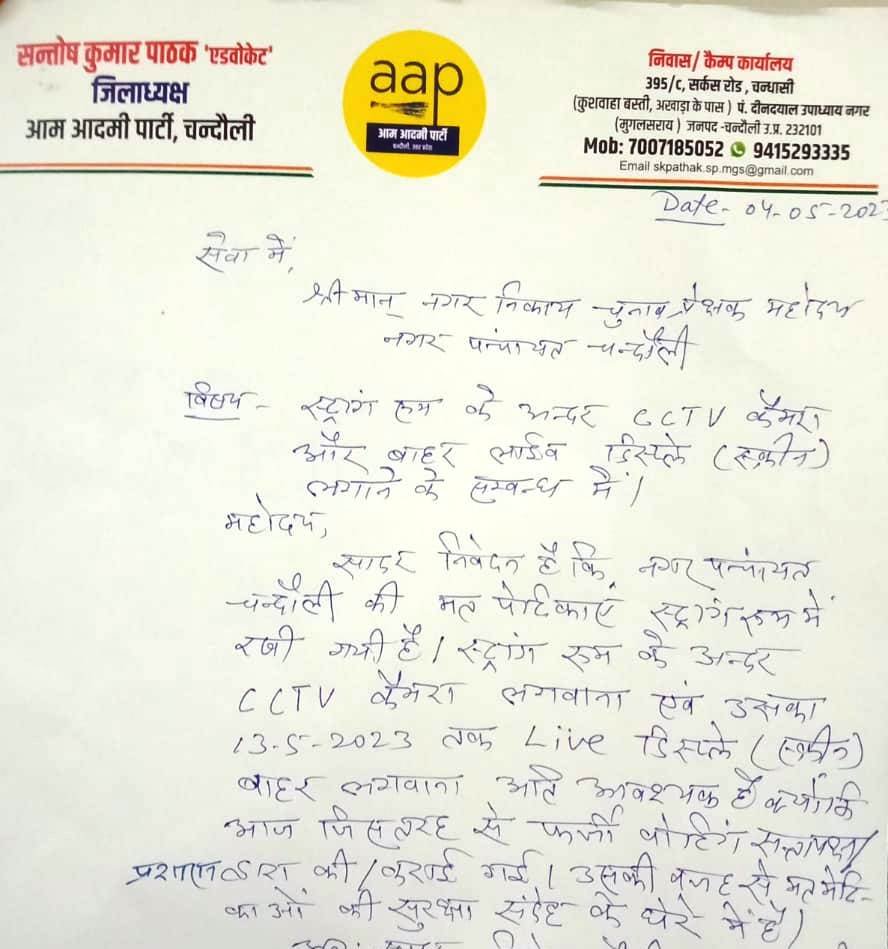 सन्तोष कुमार पाठक 'एडवोकेट'
जिलाध्यक्ष
आम आदमी पार्टी, चन्दौली
aap
आम आदमी पार्टी
चन्दौली, उत्तर प्रदेश
निवास/ कैम्प कार्यालय
395/c, सर्कस रोड , चन्धासी
(कुशवाहा बस्ती, अखाड़ा के पास ) पं. दीनदयाल उपाध्याय नगर
(मुगलसराय ) जनपद -चन्दौली उ.प्र. 232101
Mob: 7007185052 9415293335
Email skpathak.sp.mgs@gmail.com
Date- 04-05-2023
सेवा में,
श्रीमान् नगर निकाय चुनाव प्रेक्षक महोदय
नगर पंचायत चन्दौली
विषय - स्ट्रांग रूम के अन्दर CCTV कैमरा
और बाहर लाईव डिस्प्ले (स्क्रीन)
लगाने के सम्बन्ध में।
महोदय,
सादर निवेदन है कि, नगर पंचायत
चन्दौली की मत पेटिकाएं स्ट्रांग रूम में
रखी गयी है। स्ट्रांग रूम के अन्दर
CCTV कैमरा लगवाना एवं उसका
13-5-2023 तक Live डिस्प्ले (स्क्रीन)
बाहर लगवाना अति आवश्यक है क्योंकि
आज जिस तरह से फर्जी वोटिंग सत्तापक्ष/
प्रशासन द्वारा की/कराई गई। उसकी वजह से मत पेटि-
काओं की सुरक्षा संदेह के घेरे में है।